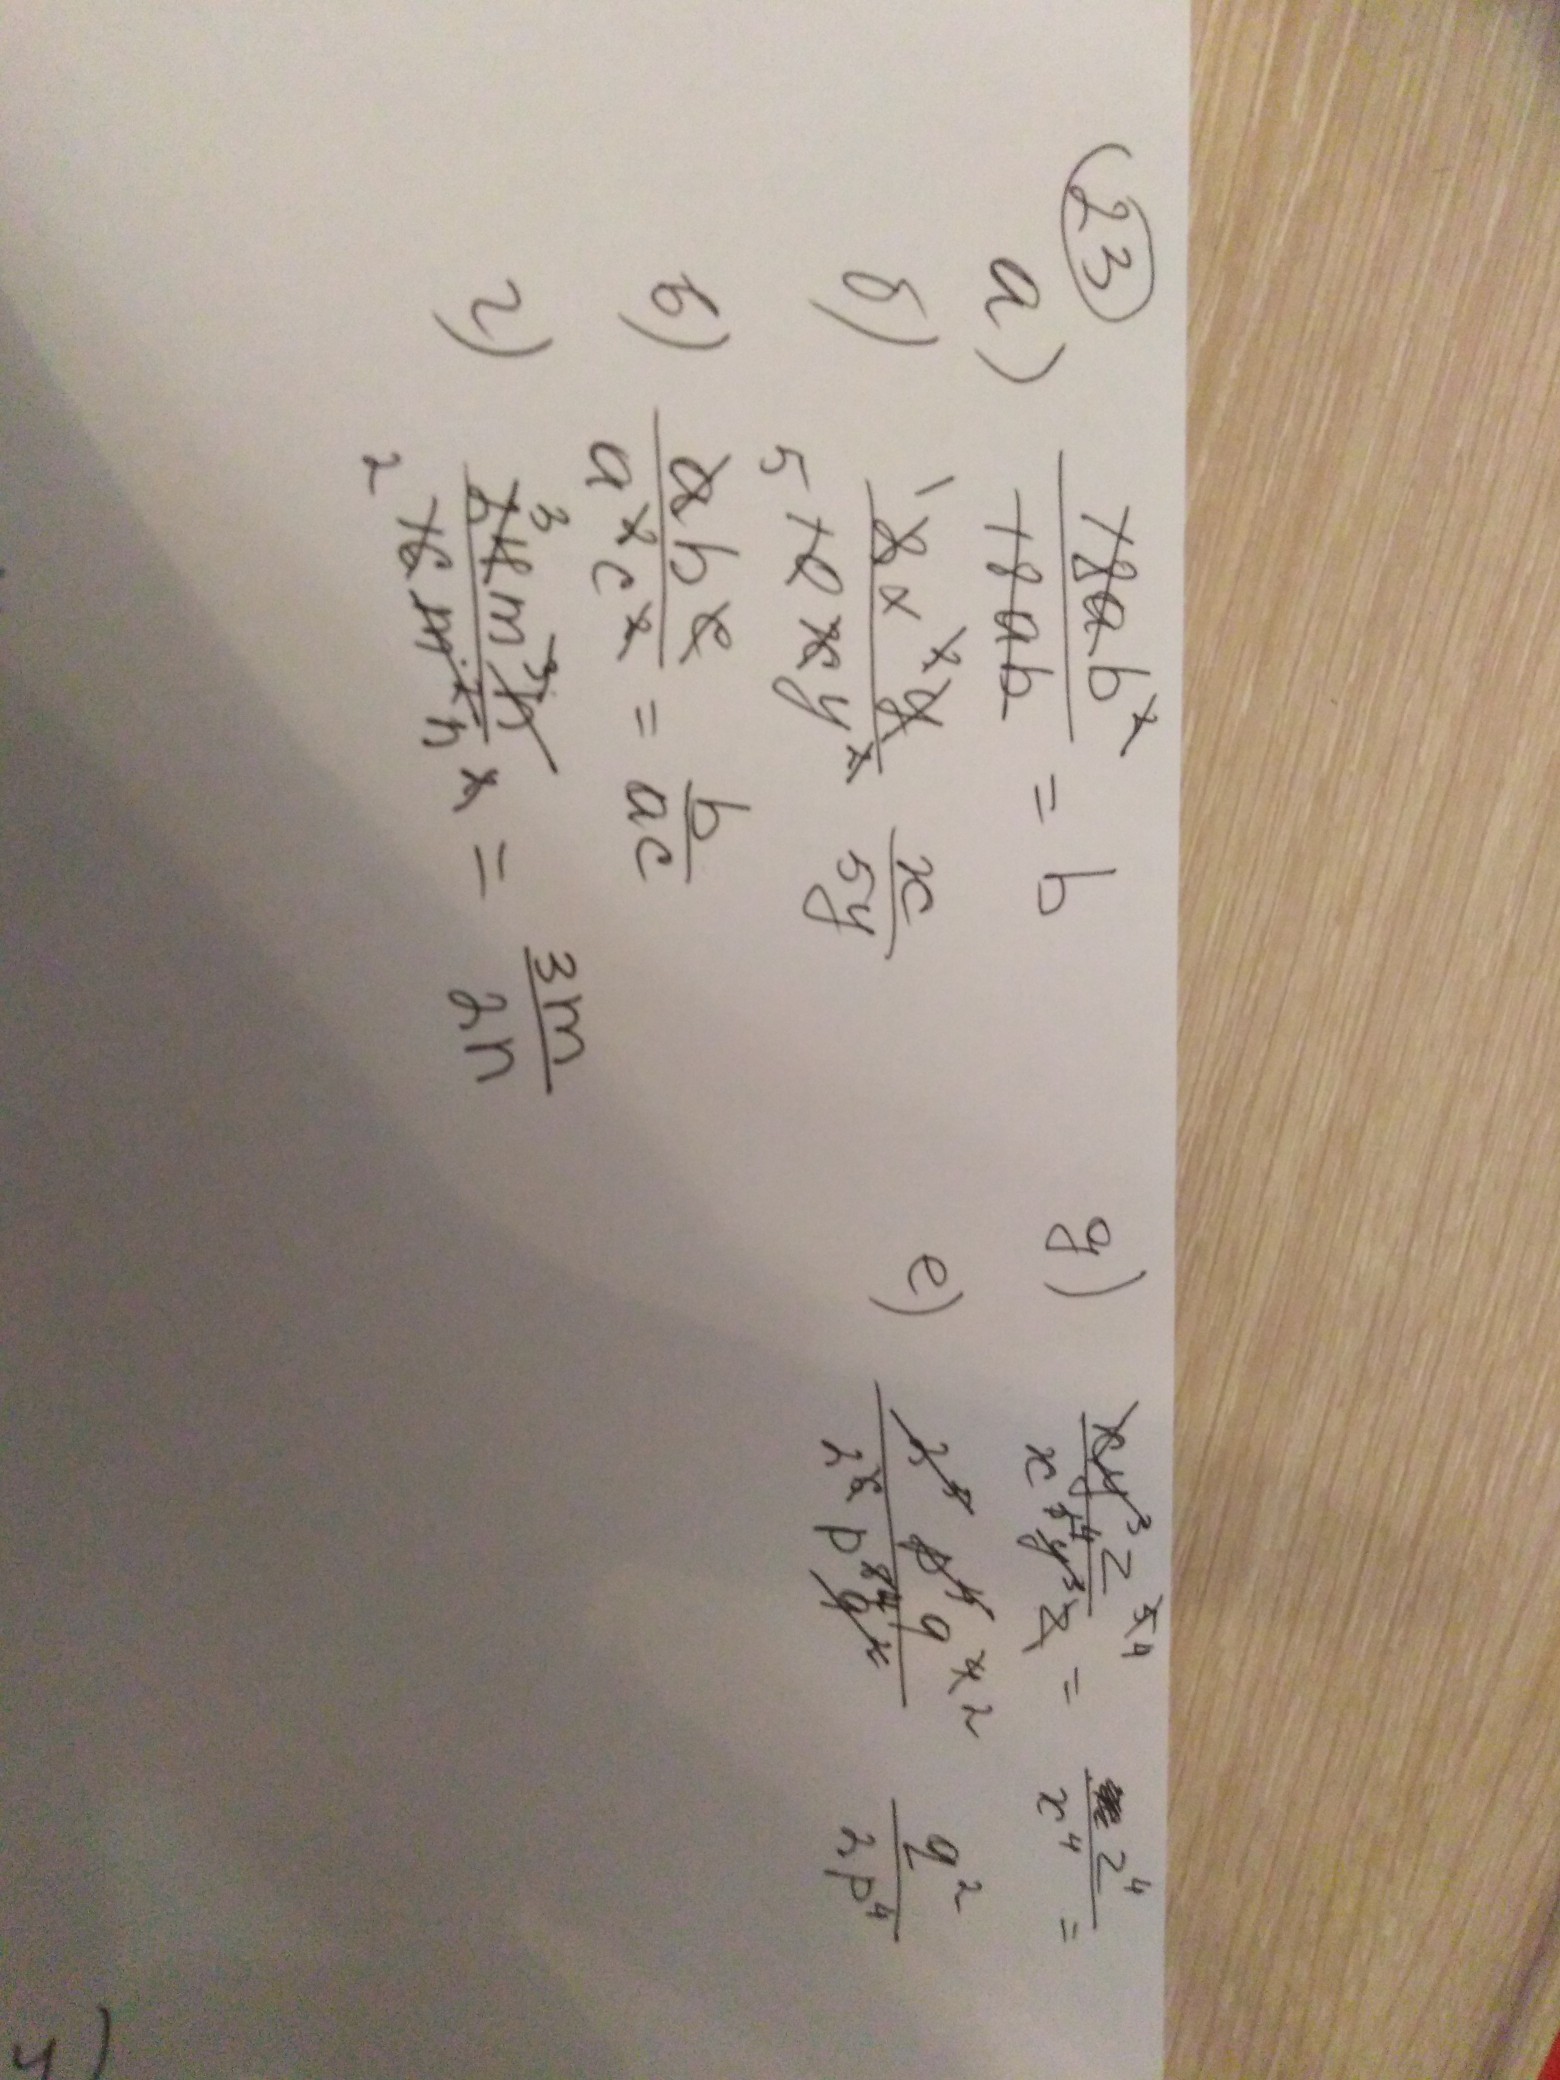 23
а) 18ab² / 18ab = b
б) 1 2x²y / 5 10xy² x / 5y
в) abc / a²c² = b / ac
г) 3 24m³n / 2 16m²n² = 3m / 2n
д) xy³z⁵ ⁴ / x⁵ ⁴y³z = z⁴ / x⁴ =
е) q⁴ ² / p⁸ ⁴ q² / 2p⁴